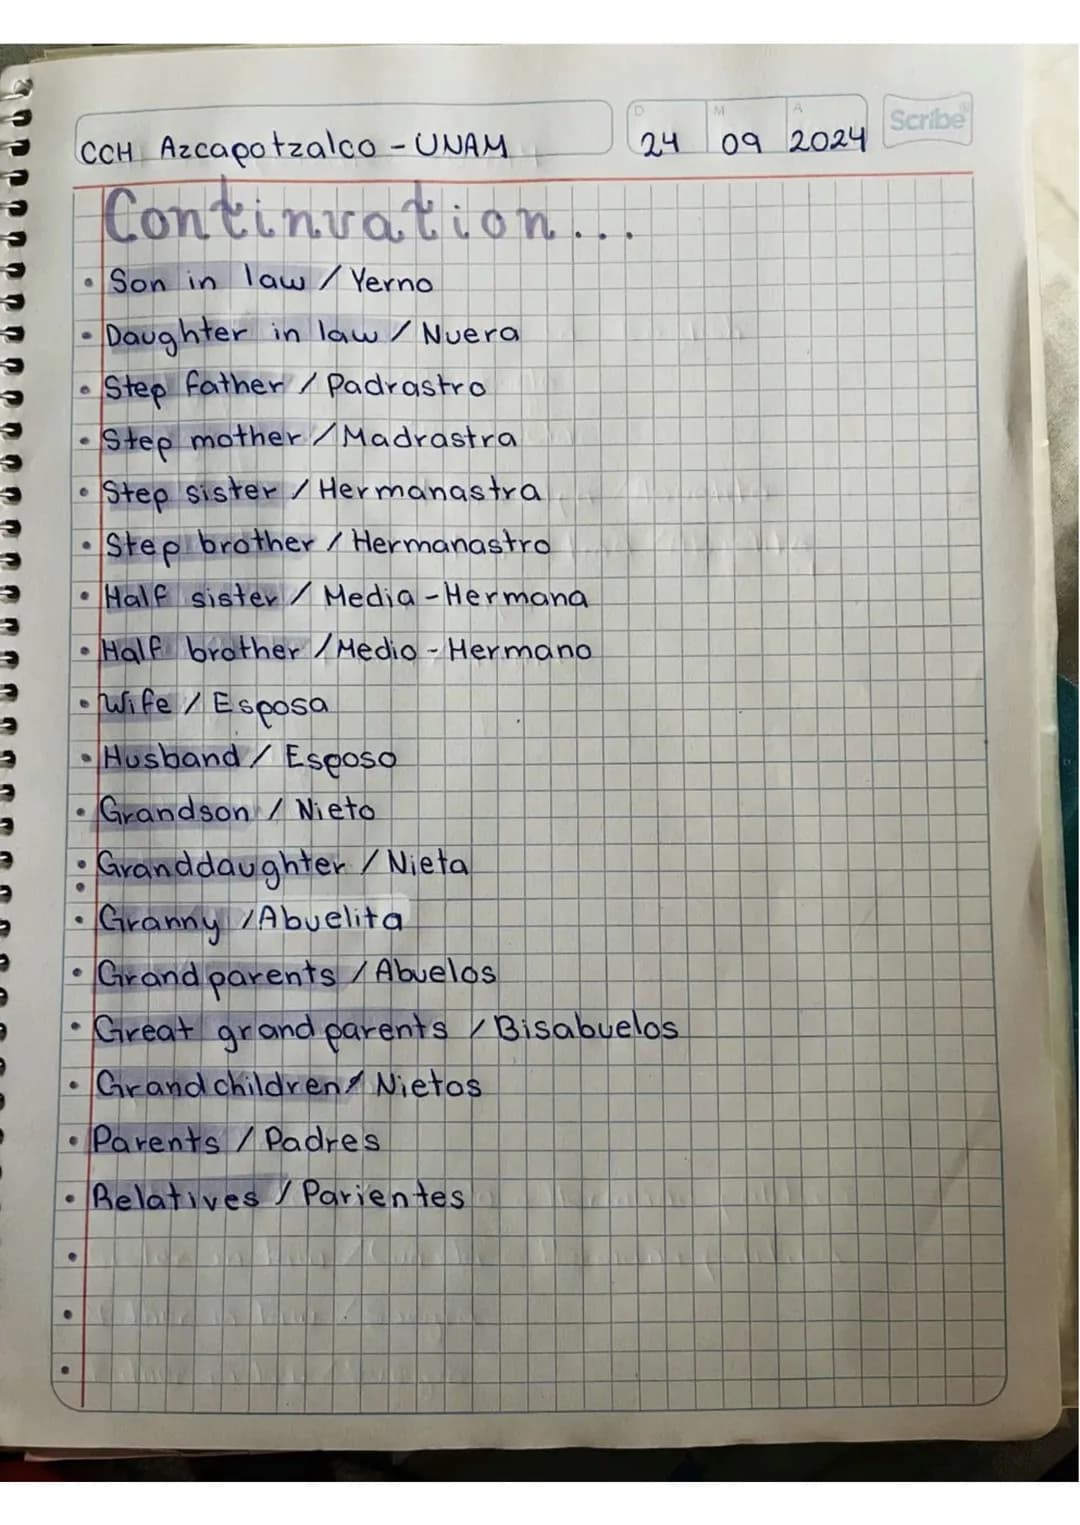 CCH Azcapotzalco - UNAM
D M A
24 09 2024
Scribe
Continuation...
• Son in law / Yerno
• Daughter in law / Nuera
• Step father / Padrastro
• Step mother / Madrastra
• Step sister / Hermanastra
• Step brother / Hermanastro
• Half sister / Media - Hermana
• Half brother / Medio - Hermano
• Wife / Esposa
• Husband / Esposo
• Grandson / Nieto
• Granddaughter / Nieta
• Granny / Abuelita
• Grandparents / Abuelos
• Great grandparents / Bisabuelos
• Grandchildren / Nietos
• Parents / Padres
• Relatives / Parientes